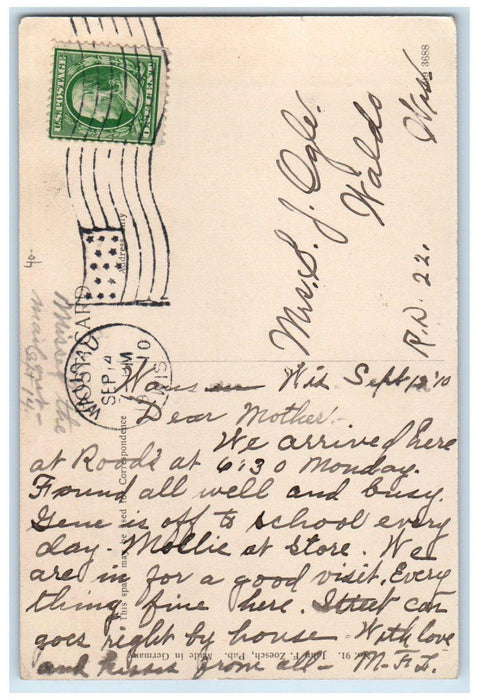 U.S. POSTAGE
ONE CENT
3688
Mrs. S. J. Ogle.
Waldo
Wis
R.D. 22.
Address only
POST CARD
WAUSAU
SEP 14
PM
1910
WIS
40-
Missed the
mail
Wausau Wis Sept 12 '10
Dear Mother:-
We arrived here
at Rood's at 6:30 Monday.
Found all well and busy.
Gene is off to school every
day. Mollie at store. We
are in for a good visit. Every
thing fine here. Street car
goes right by house. With love
and kisses from all- M-F.I.
This space may be used for Correspondence
No. 91. John P. Zoesch, Pub. Made in Germany